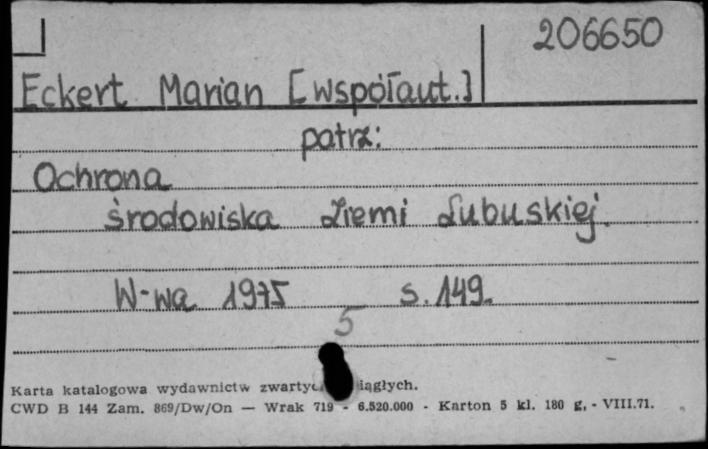 206650
Eckert Marian [współaut.]
patrz:
Ochrona
środowiska Ziemi Lubuskiej
W-wa 1975 s. 149.
5
Karta katalogowa wydawnictw zwartyc iągłych.
CWD B 144 Zam. 869/Dw/On — Wrak 719 - 6.520.000 - Karton 5 kl. 180 g, - VIII.71.